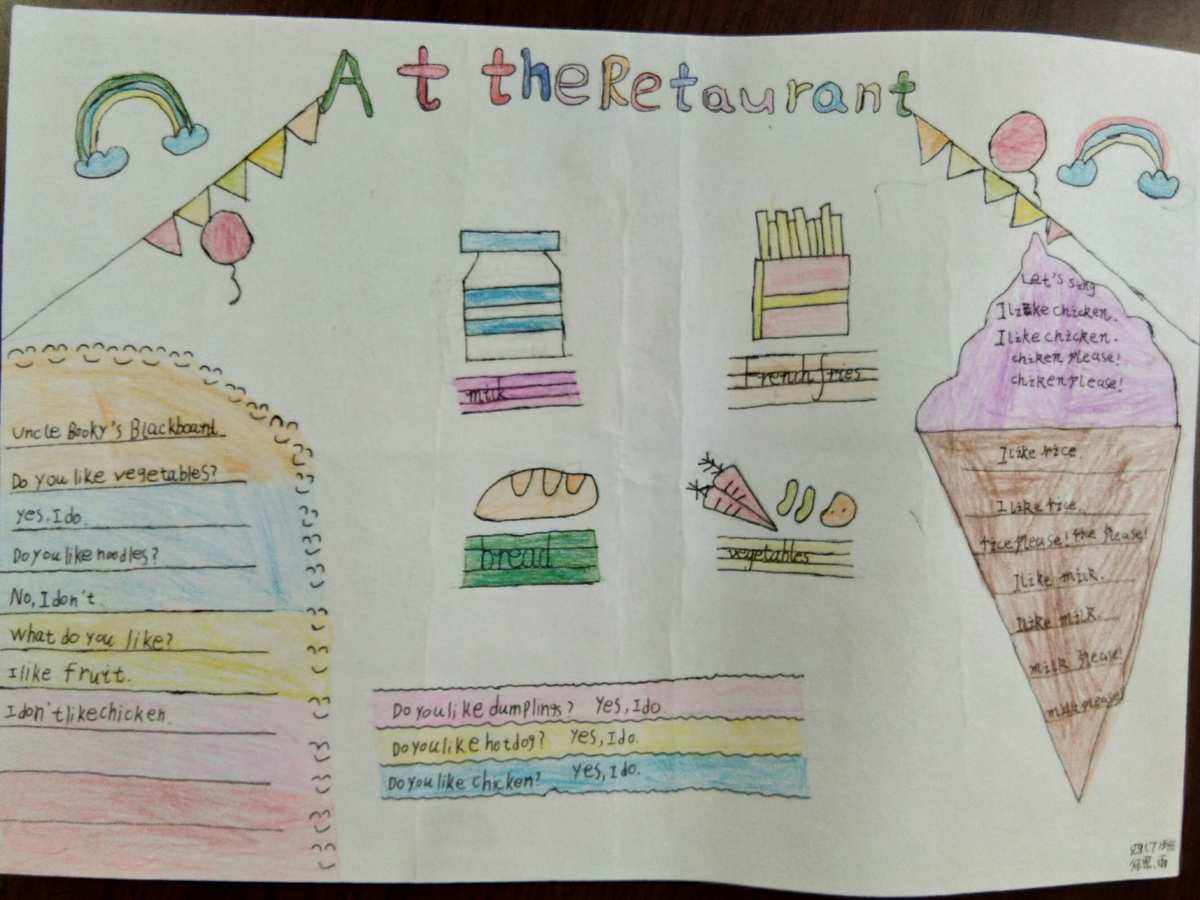 At the Retaurant
Uncle Booky's Blackboard
Do you like vegetables?
Yes, I do.
Do you like noodles?
No, I don't.
What do you like?
I like fruit.
I don't like chicken.
milk
French fries
bread
vegetables
Do you like dumplings? Yes, I do.
Do you like hotdog? Yes, I do.
Do you like chicken? Yes, I do.
Let's sing
I like chicken.
I like chicken.
chiken please!
chiken please!
I like rice.
I like rice.
rice please! rice please!
I like milk.
I like milk.
milk please!
milk please!